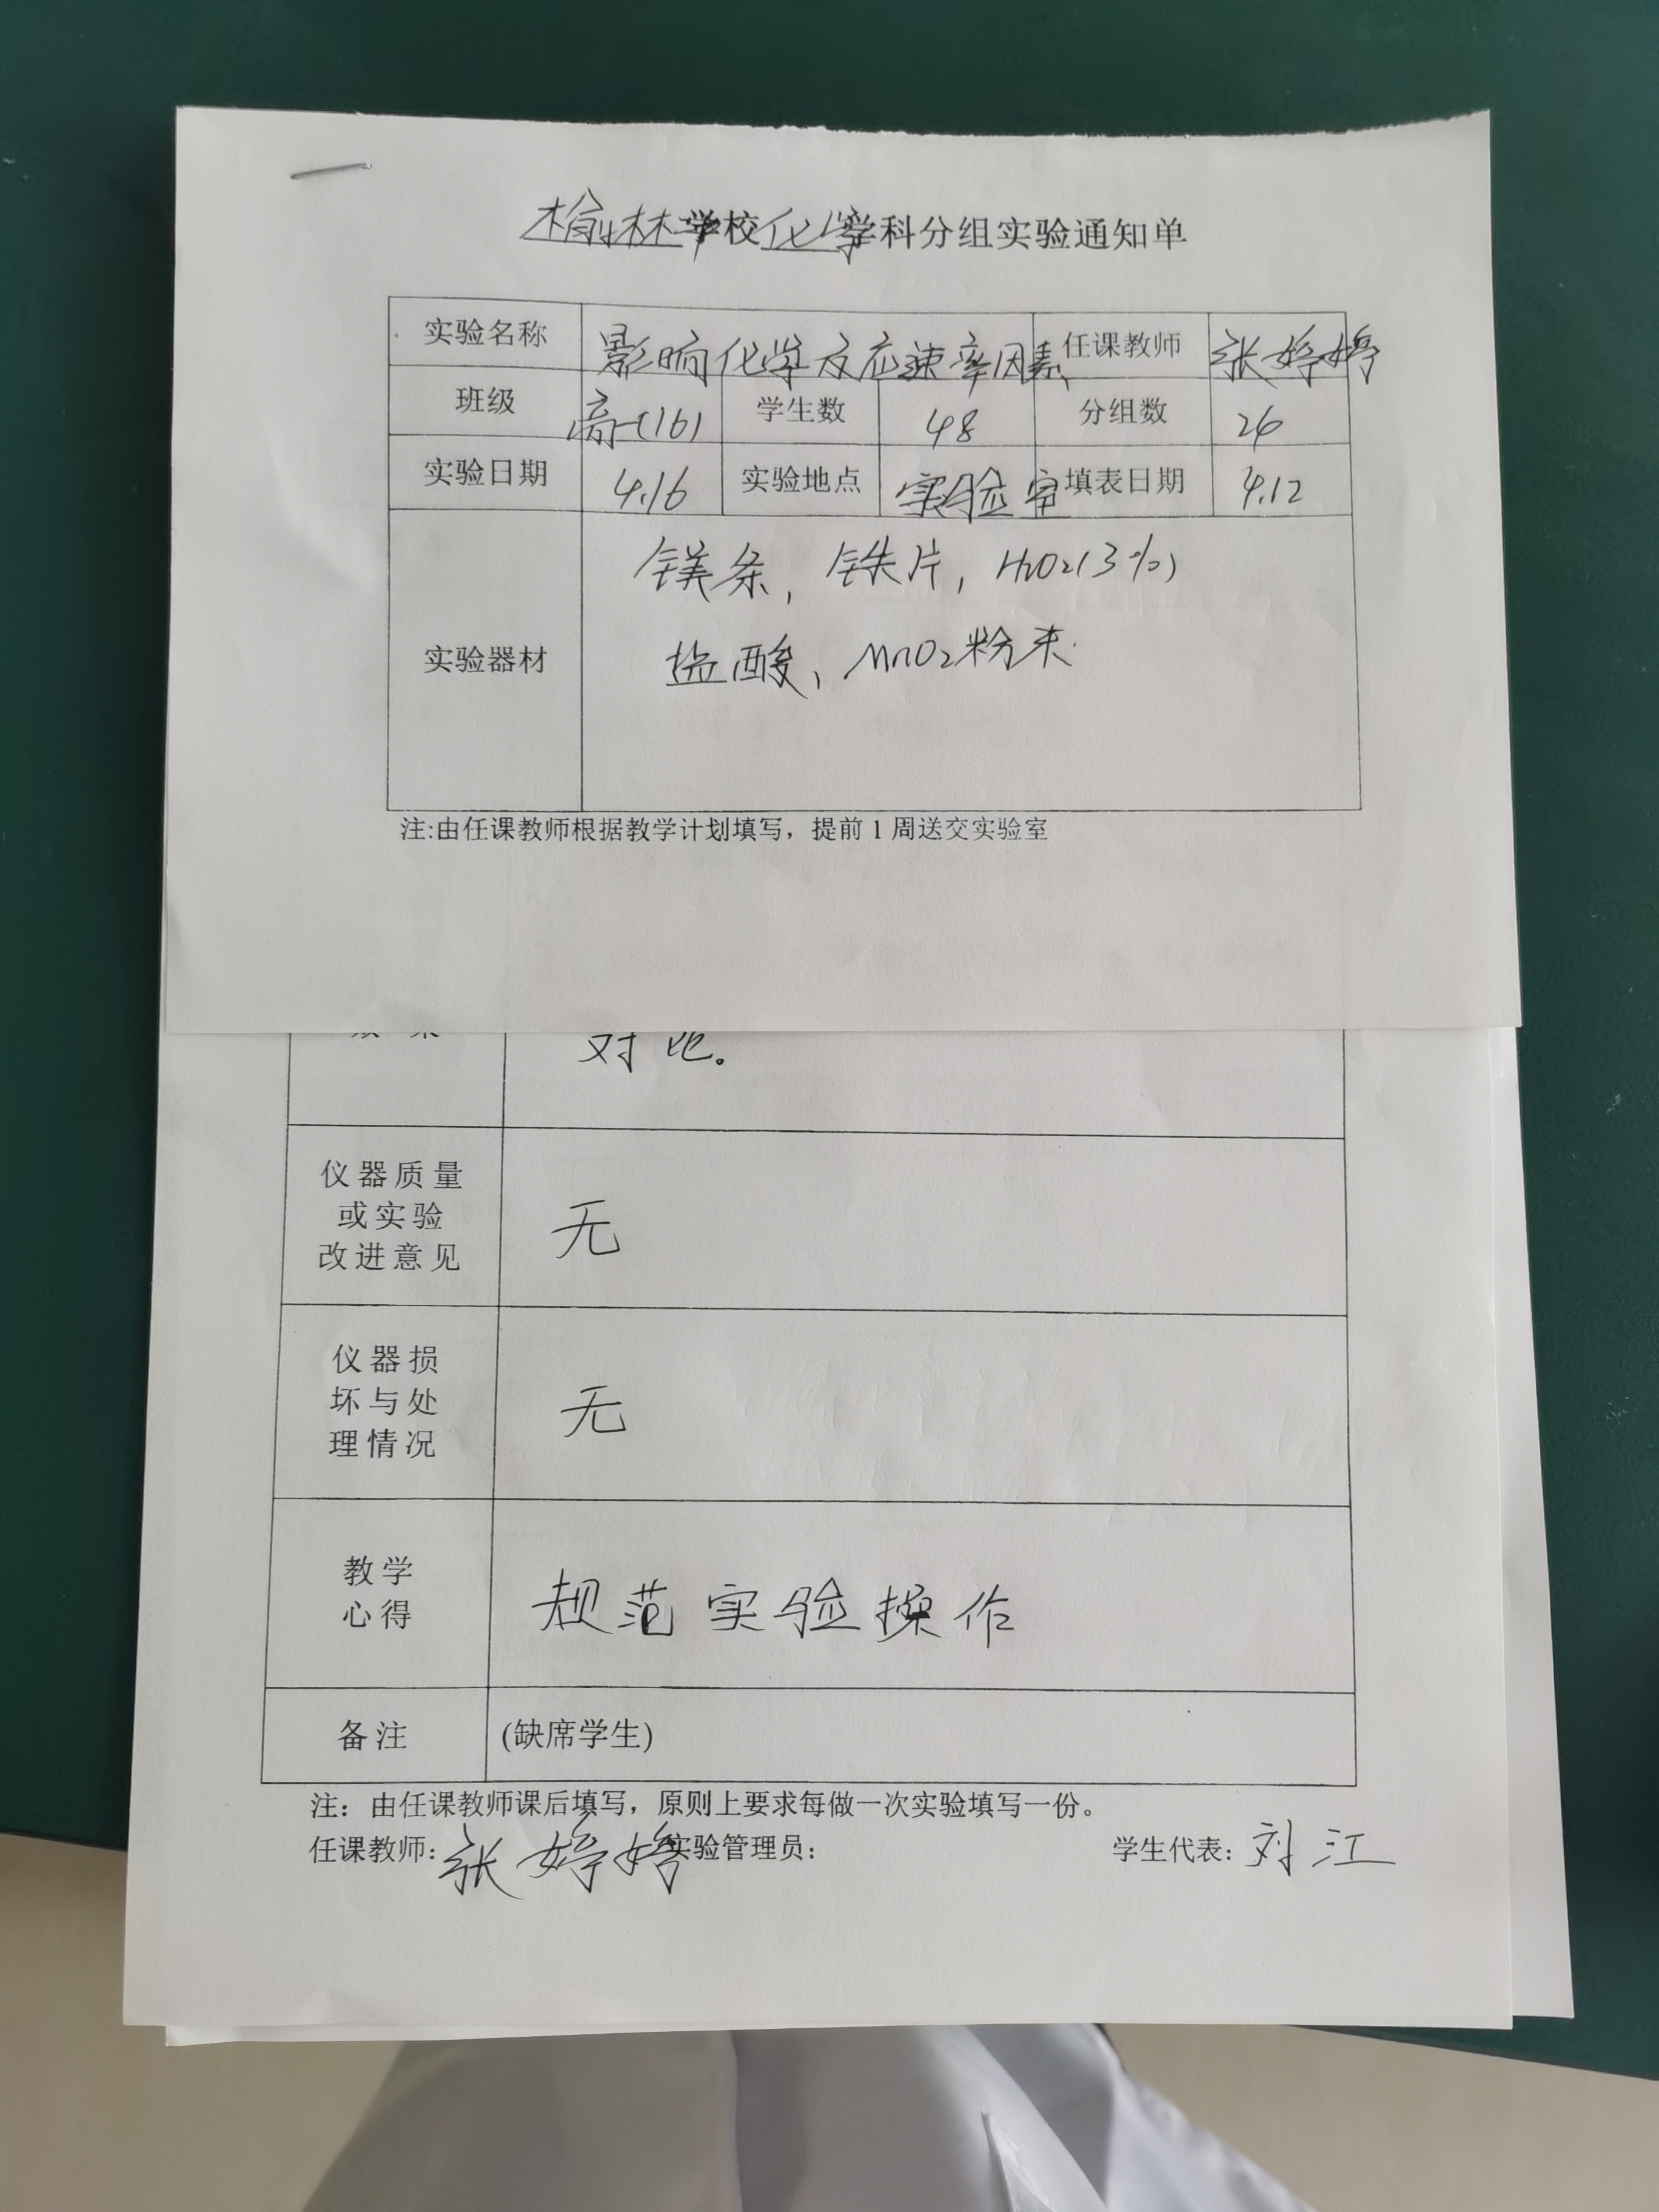 榆林中学校化学学科分组实验通知单
实验名称 影响化学反应速率因素 任课教师 张婷婷
班级 高一(16) 学生数 48 分组数 24
实验日期 4.16 实验地点 实验室 填表日期 4.12
镁条, 铁片, H2O2(3%)
实验器材 盐酸, MnO2粉末.
注:由任课教师根据教学计划填写，提前1周送交实验室
对比。
仪器质量
或实验
改进意见
无
仪器损
坏与处
理情况
无
教学
心得
规范实验操作
备注 (缺席学生)
注：由任课教师课后填写，原则上要求每做一次实验填写一份。
任课教师: 张婷婷 实验管理员: 学生代表: 刘江